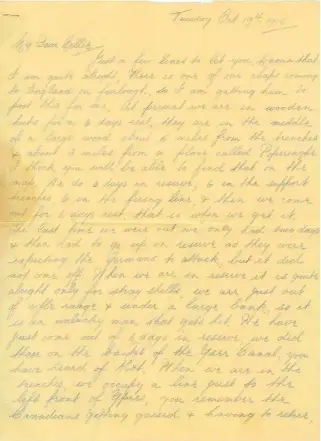 Tuesday Oct 19th 1915
My Dear Nellie
Just a few lines to let you know that
I am quite alright, there is one of our chaps coming
to England on furlough, so I am getting him to
post this for me. At present we are in wooden
huts for a 6 days rest, they are in the middle
of a large wood about 6 miles from the trenches
& about 3 miles from a place called Poperinghe
I think you will be able to find that on the
map. We do 6 days in reserve, 6 in the support
trenches 6 in the firing line & then we come
out for 6 days rest, that is when we get it
The last time we were out we only had two days
& then had to go up in reserve as they were
expecting the germans to attack, but it did
not come off. When we are in reserve it is quite
alright only for stray shells we are just out
of rifle range & under a large bank, so it
is an unlucky man that gets hit. We have
just come out of 6 days in reserve, we did
them on the banks of the Yser Canal, you
have heard of that. When we are in the
trenches, we occupy a line just to the
left front of Ypres, you remember the
Canadians getting gassed & having to retire,